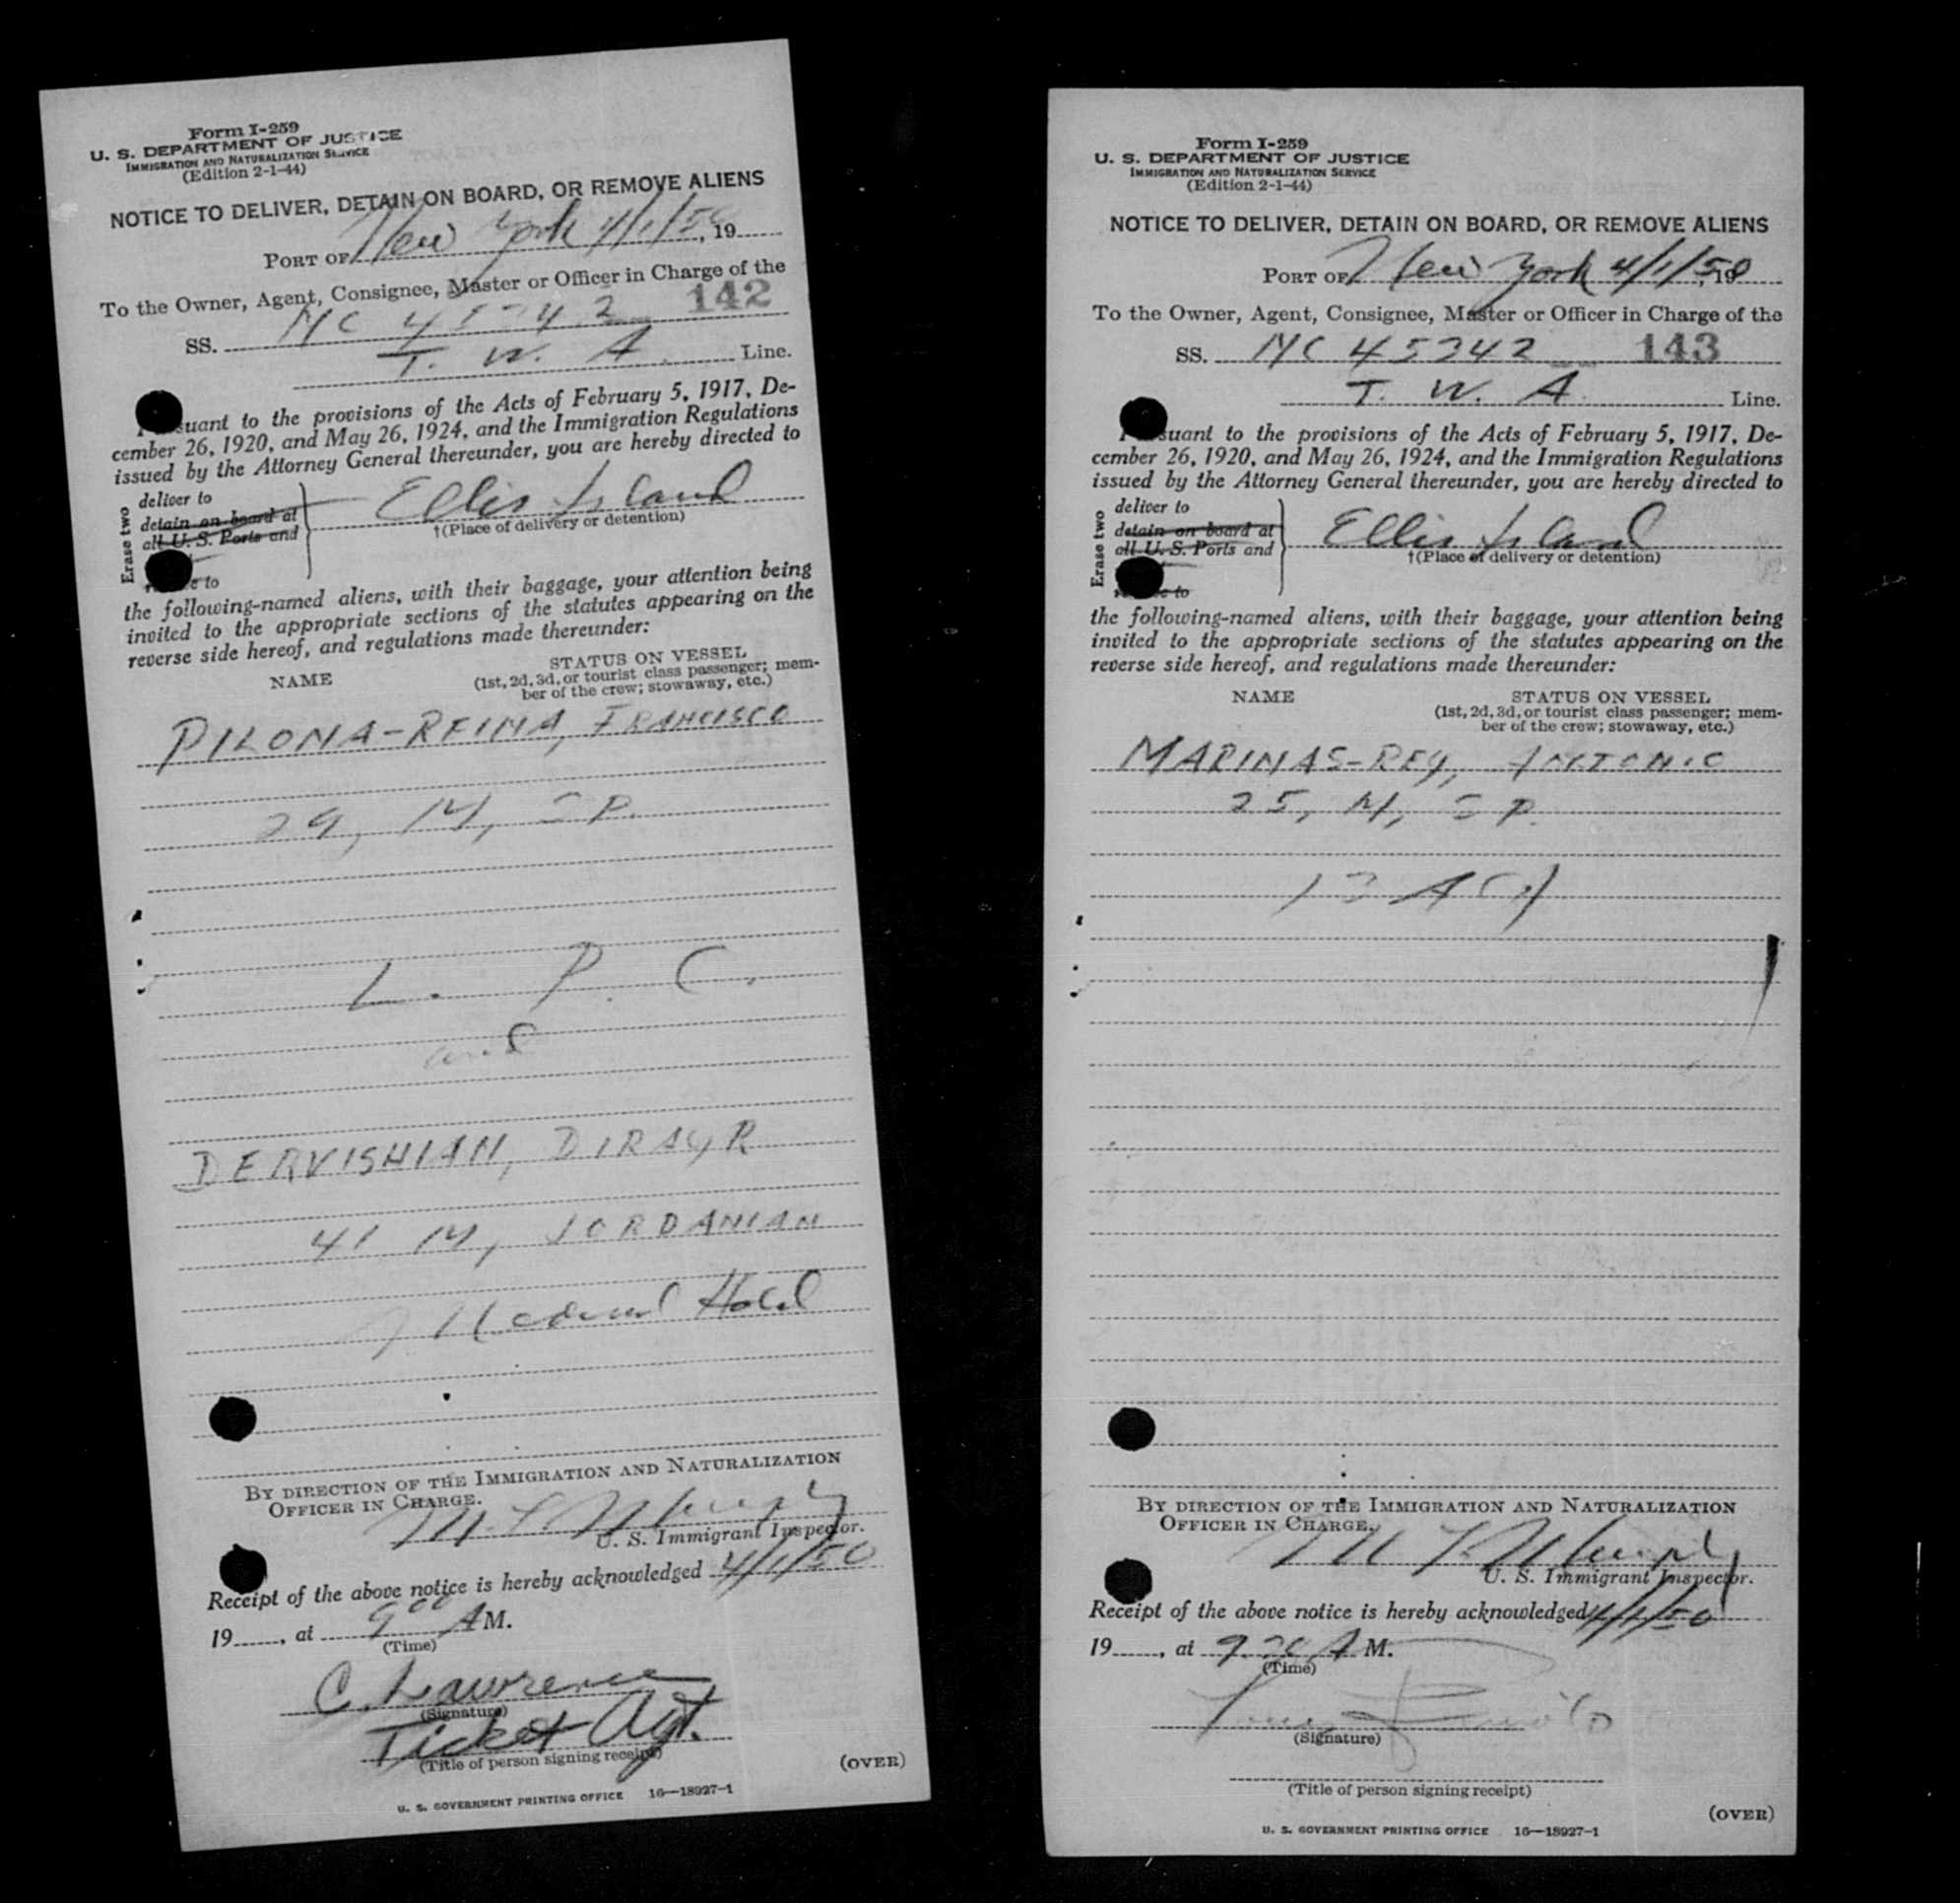 Form I-259
U. S. DEPARTMENT OF JUSTICE
IMMIGRATION AND NATURALIZATION SERVICE
(Edition 2-1-44)
NOTICE TO DELIVER, DETAIN ON BOARD, OR REMOVE ALIENS
PORT OF New York 4/1/50, 19
To the Owner, Agent, Consignee, Master or Officer in Charge of the
142
SS. NC 45342
T. W. A. Line.
suant to the provisions of the Acts of February 5, 1917, De-
cember 26, 1920, and May 26, 1924, and the Immigration Regulations
issued by the Attorney General thereunder, you are hereby directed to
Erase two
deliver to
detain on board at
all U. S. Ports and
to
Ellis Island
†(Place of delivery or detention)
the following-named aliens, with their baggage, your attention being
invited to the appropriate sections of the statutes appearing on the
reverse side hereof, and regulations made thereunder:
NAME
STATUS ON VESSEL
(1st, 2d, 3d, or tourist class passenger; mem-
ber of the crew; stowaway, etc.)
PILONA-REINA, FRANCISCO
29, M, SP.
L. P. C.
and
DERVISHIAN, DIRAYR
41 M, JORDANIAN
Hold
BY DIRECTION OF THE IMMIGRATION AND NATURALIZATION
OFFICER IN CHARGE.
U. S. Immigrant Inspector.
Receipt of the above notice is hereby acknowledged 4/1/50
19, at 9 00 A M.
(Time)
C. Lawrence
(Signature)
Ticket Agt.
(Title of person signing receipt)
(OVER)
U. S. GOVERNMENT PRINTING OFFICE 16—18927-1
Form I-259
U. S. DEPARTMENT OF JUSTICE
IMMIGRATION AND NATURALIZATION SERVICE
(Edition 2-1-44)
NOTICE TO DELIVER, DETAIN ON BOARD, OR REMOVE ALIENS
PORT OF New York 4/1/50, 19
To the Owner, Agent, Consignee, Master or Officer in Charge of the
SS. NC 45342 143
T. W. A. Line.
suant to the provisions of the Acts of February 5, 1917, De-
cember 26, 1920, and May 26, 1924, and the Immigration Regulations
issued by the Attorney General thereunder, you are hereby directed to
Erase two
deliver to
detain on board at
all U. S. Ports and
to
Ellis Island
†(Place of delivery or detention)
the following-named aliens, with their baggage, your attention being
invited to the appropriate sections of the statutes appearing on the
reverse side hereof, and regulations made thereunder:
NAME
STATUS ON VESSEL
(1st, 2d, 3d, or tourist class passenger; mem-
ber of the crew; stowaway, etc.)
MARINAS-REY, ANTONIO
25, M, SP.
BY DIRECTION OF THE IMMIGRATION AND NATURALIZATION
OFFICER IN CHARGE.
U. S. Immigrant Inspector.
Receipt of the above notice is hereby acknowledged 4/1/50
19, at A M.
(Time)
(Signature)
(Title of person signing receipt)
(OVER)
U. S. GOVERNMENT PRINTING OFFICE 16—18927-1